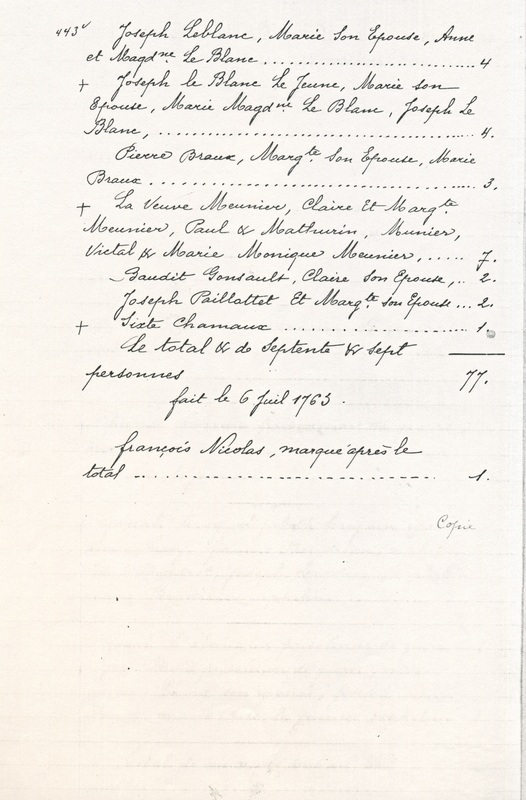 443v
Joseph Leblanc, Marie Son Epouse, Anne
et Magdne Le Blanc .......................... 4
+ Joseph le Blanc Le Jeune, Marie son
Epouse, Marie Magdne Le Blanc, Joseph Le
Blanc, ........................................ 4.
Pierre Braux, Margte Son Epouse, Marie
Braux ........................................ 3.
+ La Veuve Meunier, Claire Et Margte
Meunier, Paul & Mathurin, Munier,
Victal & Marie Monique Meunier, ...... 7.
Baudit Gonsault, Claire Son Epouse, .. 2.
Joseph Paillottet Et Margte son Epouse ... 2.
+ Sixte Chamaux ....................... 1.
Le total & de Septente & Sept
personnes 77.
fait le 6 Juil 1763.
françois Nicolas, marqué après le
total .................................. 1.
Copie